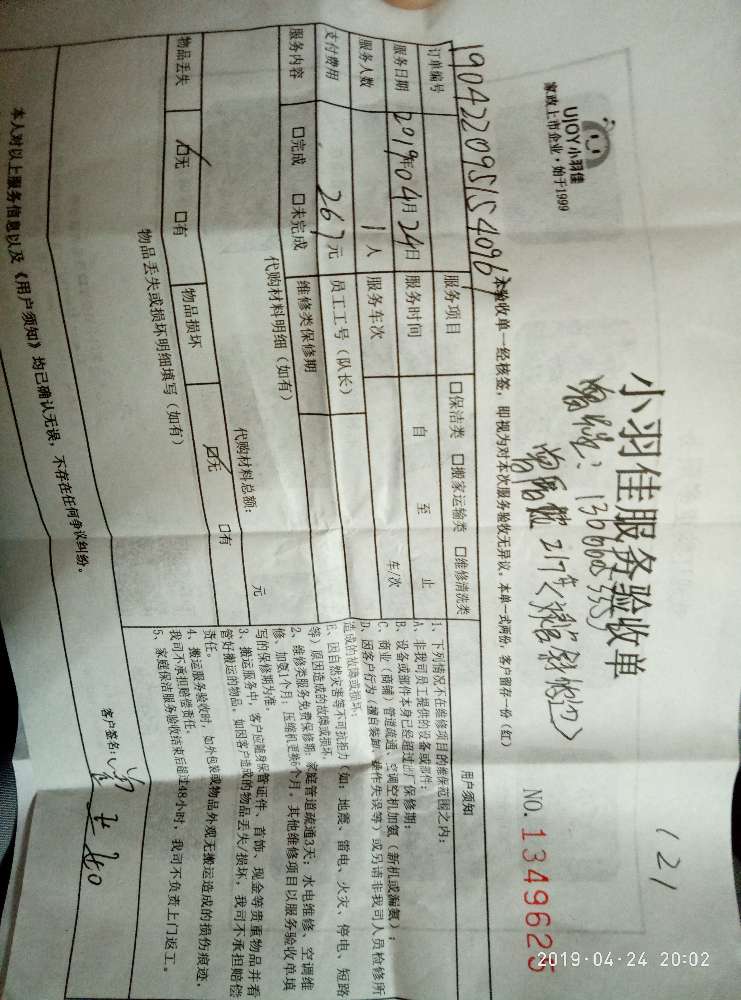 UJOY小羽佳
家政上市企业·始于1999
小羽佳服务验收单
121
NO.1349625
本验收单一经核签，即视为对本次服务验收无异议。本单一式两份，客户留存一份（红）
订单编号 190422095154096
服务项目 口保洁类 口搬家运输类 口维修清洗类
服务日期 2019年04月24日 服务时间 自 至 止
服务人数 1人 服务车次 车/次
支付费用 267元 员工工号（队长）
服务内容 口完成 口未完成 维修类保修期
代购材料明细（如有）
代购材料总额： 元
物品丢失 口无 口有 物品损坏 口无 口有
物品丢失或损坏明细填写（如有）
用户须知
1、下列情况不在维修项目的维保范围之内：
A、非我司员工提供的设备或部件；
B、设备或部件本身已经超过出厂保修期；
C、商业（商铺）管道疏通、空调空机加氨（新机或漏氨）；
D、因客户行为（擅自装卸、操作失误等）或另请非我司人员检修所
造成的故障或损坏；
E、因自然灾害等不可抗拒力（如：地震、雷电、火灾、停电、短路
等）原因造成的故障或损坏。
2、维修类服务免费保修期：家庭管道疏通3天；水电维修、空调维
修、加氨1个月；压缩机更新6个月，其他维修项目以服务验收单填
写的保修期为准。
3、搬运服务中，客户应随身保管证件、首饰、现金等贵重物品并看
管好搬运的物品。如因客户造成的物品丢失/损坏，我司不承担赔偿
责任。
4、搬运服务验收时，如外包装或物品外观无搬运造成的损伤痕迹，
我司不承担赔偿责任。
5、家庭保洁服务验收结束后超过48小时，我司不负责上门返工。
客户签名：
本人对以上服务信息以及《用户须知》均已确认无误，不存在任何争议纠纷。
2019-04-24 20:02